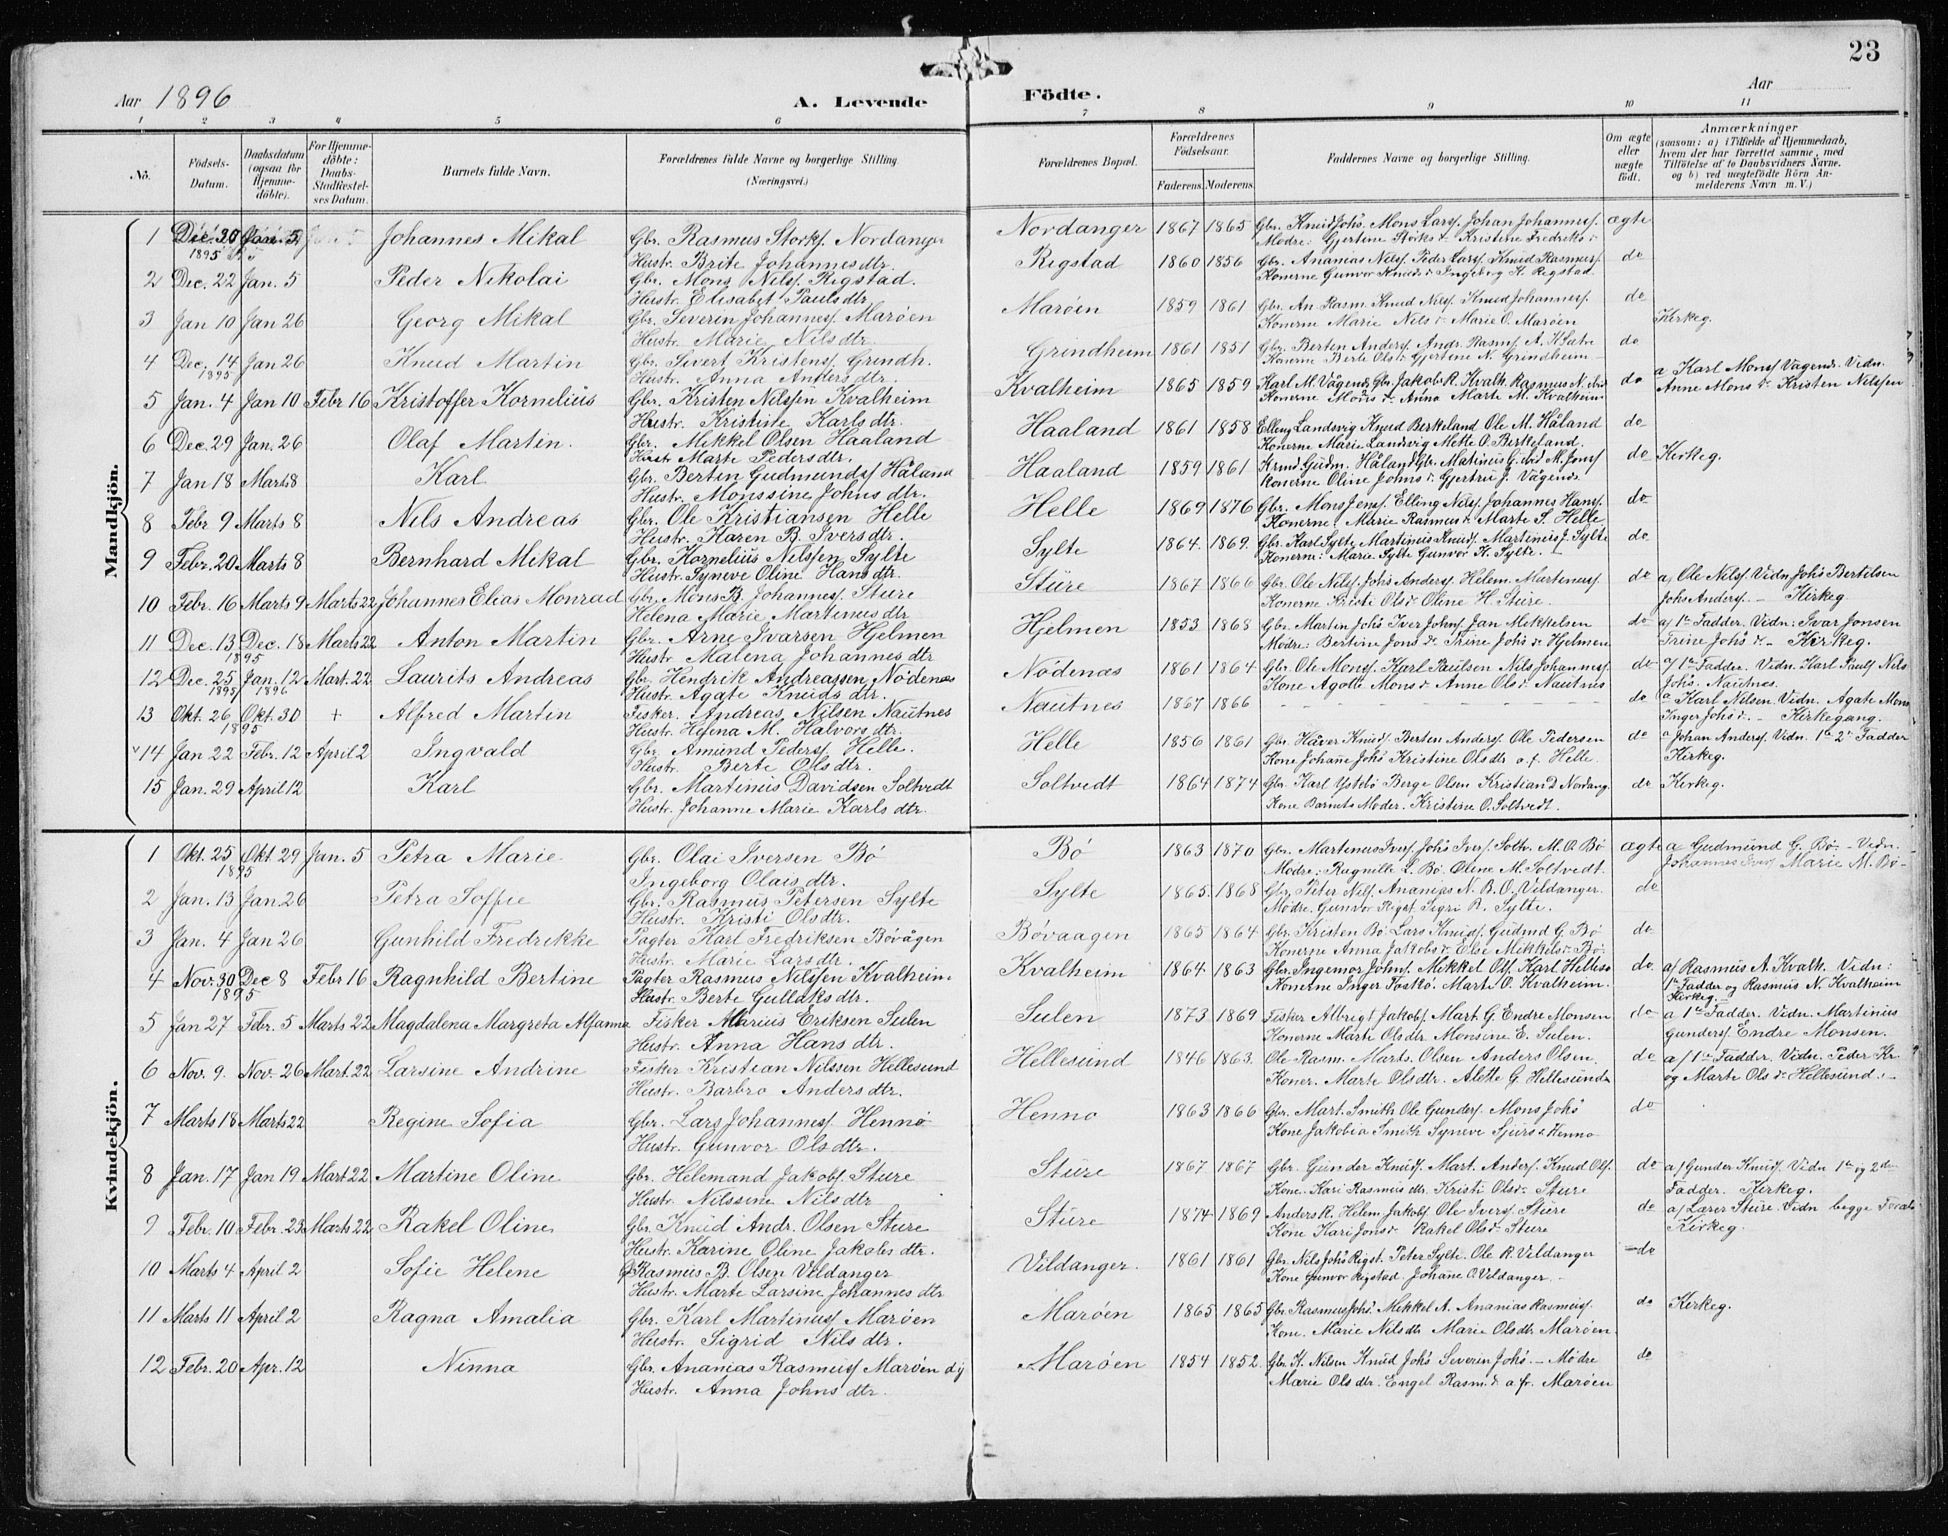 23
Aar 1896
A. Levende
Födte.
Aar
1 2 3 4 5 6 7 8 9 10 11
No.
Födsels-Datum.
Daabsdatum (ogsaa for Hjemme-döbte).
For Hjemme-döbte: Daabs-Stadfæstel-ses Datum.
Burnets fulde Navn.
Forældrenes fulde Navne og borgerlige Stilling (Næringsvei.)
Forældrenes Bopæl.
Forældrenes Födselsaar.
Faderens. Moderens.
Faddernes Navne og borgerlige Stilling.
Om ægte eller uægte födt.
Anmærkninger
(saasom: a) i Tilfælde af Hjemmedaab, hvem der har forrettet samme, med Tilföielse af to Daabsvidners Navne. og b) ved uægtefödte Börn An-melderens Navn m. V.)
Mandkjön.
1 Dec. 30 Jan. 5 Johannes Mikal Gbr. Rasmus Storks. Nordanger Nordanger 1867 1865 Gbr. Knud Johs. Mons Lars. Johan Johannes. ægte
1895 Hustr. Brite Johannesdtr. Modre: Gjertine Störks d. Kristine Fredriks d.
2 Dec. 22 Jan. 5 Peder Nikolai Gbr. Mons Nils. Rigstad. Rigstad 1860 1856 Gbr. Ananias Nils. Peder Lars. Knud Rasmus. do
Hustr. Elisabet Pauls dtr. Konerne Gunvor Knuds d. Ingeborg K. Rigstad.
3 Jan 10 Jan 26 Georg Mikal Gbr. Severin Johannes. Maröen Maröen 1859 1861 Gbr. An. Rasm. Knud Nils. Knud Johannes. do Kirkeg.
Hustr. Marie Nilsdtr. Konerne Marie Nils d. Marie O. Maröen
4 Dec. 14 Jan 26 Knud Martin Gbr. Sivert Kristens. Grindh. Grindheim 1861 1851 Gbr. Berten Anders. Andr. Rasms. A. K. do
1895 Hustr. Anna Anders dtr. Konerne Berte Ols d. Gjertine N. Grindheim
5 Jan. 4 Jan 10 Febr 16 Kristoffer Kornelius Gbr. Kristen Nilssen Kvalheim Kvalheim 1865 1859 Karl M. Vågenes Gbr. Jakob R. Kvalh. Rasmus N. ibid do a Karl Mons. Vagenes. Vidn.
Hustr. Kristine Karls dtr. Konerne Mons d. Anna Marte M. Kvalheim Anne Mons d. Kristen Nilssen
6 Dec. 29 Jan. 26 Olaf Martin. Gbr. Mikkel Olsen Haaland Haaland 1861 1858 Elling Landsvig Knud Berkeland Ole M. Håland do
Hustr Marte Pedersdtr. Konerne Marie Landsvig Mette O. Berkeland.
7 Jan 18 Marts 8 Karl Gbr. Berten Gudmunds. Håland Haaland 1859 1861 Knud Gudm. Håland Gbr. Matinius G. ibid M. Jons. do Kirkeg.
Hustr. Monssine Johns dtr. Konerne Oline Johns d. Gjertru J. Vågenes
8 Febr. 9 Marts 8 Nils Andreas Gbr. Ole Kristiansen Helle Helle 1869 1876 Gbr. Mons Jens. Elling Nils. Johannes Hans. do
Hustr. Karen B. Iversdtr. Konerne: Marie Rasmus d. Marte S. Helle
9 Febr. 20 Marts 8 Bernhard Mikal Gbr. Kornelius Nilssen Sylte Sylte 1864. 1869. Gbr. Karl Sylte, Martinius Knuds. Martinius J. Sylte do
Hustr. Syneve Oline Hans dtr. Konerne: Marie Sylte Gunvor K. Sylte.
10 Febr. 16 Marts 9 Marts 22 Johannes Elias Monrad Gbr. Mons B. Johannes. Sture Sture 1867 1866 Gbr. Ole Nils. Johs Anders. Helem. Martinus. do a) Ole Nils. Vidn. Johs Bertelsen
Helena Marie Martinus dtr Konerne Kristi Ols d. Oline H. Sture. Johs Anders. - Kirkeg.
11 Dec. 13 Dec. 18 Marts 22 Anton Martin Gbr. Arne Ivarsen Hjelmen Hjelmen 1853 1868 Gbr. Martin Johs Iver Johns. Jan Mikkelsen do a) 1te Fadder. Vidn: Ivar Jonsen
1895 Hustr. Malena Johannesdtr Modre: Bertine Jons d. Trine Johs d. Hjelmen Trine Johs d. - Kirkeg.
12 Dec. 25 Jan. 12 Mart. 22 Laurits Andreas Gbr. Hendrik Andreassen Nödenæs Nödenæs 1861 1864 Gbr. Ole Mons. Karl Paulsen Nils Johannes. do a) 1te Fadder. Vidn. Karl Pauls. Nils
1895 1896 Hustr. Agate Knudsdtr. Kone Agotte Mons d. Anne Ols d. Nautnes Johs. Nautnes.
13 Okt. 26 Okt. 30 + Alfred Martin Fisker. Andreas Nilsen Nautnes Nautnes 1867 1866 do a Karl Nilsen. Vidn. Agate Mons
1895 Hustr. Helena M. Halvors dtr. Inger Johs d. - Kirkegang.
14 Jan 22 Febr. 12 April 2 Ingvald Gbr. Amund Peders. Helle. Helle 1856 1861 Gbr. Håver Knuds. Berten Anders. Ole Pedersen do a Johan Anders. Vidn. 1te 2d Fadder
Hustr. Berte Olsdtr. Kone Johane Johs Kristine Olsdtr a. f. Helle. Kirkeg.
15 Jan. 29 April 12 Karl Gbr. Martinius Davidsen Soltvedt Soltvedt 1864 1874 Gbr. Karl Ystebö Berge Olsen Kristian D Nordang. do Kirkeg.
Hustr. Johanne Marie Karls dtr. Kone Barnets Moder. Kristine O. Soltvedt.
Kvindekjön.
1 Okt. 25 Okt. 29 Jan. 5 Petra Marie Gbr. Olai Iversen Bö Bö 1863 1870 Gbr. Martinus Ivers. Johs Ivers. Soltv. M. O. Bö ægte a Gudmund G. Bö. - Vidn.
1895 Ingeborg Olais dtr. Modre: Ragnille L. Bö. Oline M. Soltvedt. Johannes Ivers. Marie M. Bö -
2 Jan. 13 Jan. 26 Petra Soffie Gbr. Rasmus Petersen Sylte Sylte 1865. 1868 Gbr. Peter Nils. Ananias N. B. O. Vildanger. do
Hustr. Kristi Olsdtr. Modre. Gunvor Rigst. Sigri R. Sylte.
3 Jan. 4 Jan 26 Gunhild Fredrikke Pagter Karl Fredriksen Bövågen Bövaagen 1865 1864 Gbr. Kristen Bö Lars Knuds. Gudmd G. Bö do
Hustr. Marie Larsdtr. Konerne Anna Jakobs d. Else Mikkels d. Bö.
4 Nov. 30 Dec 8 Febr 16 Ragnhild Bertine Pagter Rasmus Nilssen Kvalheim Kvalheim 1864. 1863 Gbr. Ingemor Johns. Mikkel Ols. Karl Helless do. a) Rasmus A. Kvalh. Vidn:
1895 Hustr. Berte Gullaks dtr. Konerne Inger Foskö. Mart. O. Kvalheim. 1te Fadder og Rasmus N. Kvalheim
Kirkeg.
5 Jan 27 Febr. 5 Marts 22 Magdalena Margreta Alfanna Fisker Marius Eriksen Sulen Sulen 1873 1869 Fisker Albrigt Jakobs. Mart. G. Endre Monsen do a 1te Fadder. Vidn. Martinius
Hustr. Anna Hans dtr. Konerne Marte Olsdtr Monsine E. Sulen. Gunders. Endre Monsen.
6 Nov. 9. Nov. 26 Mart. 22 Larsine Andrine Fisker Kristian Nilssen Hellesund Hellesund 1846 1863. Ole Rasm. Marts. Olsen Anders Olsen. do a) 1te Fadder. Vidn. Peder Kr.
Hustr. Barbro Andersdtr. Koner. Marte Olsdtr. Alette G. Hellesund og Marte Ols d. Hellesund.
7 Marts 18 Marts 22 Regine Sofia Gbr. Lars Johannes. Hennö Henno 1863 1866 Gbr. Mart. Smith Ole Gunders. Mons Johs do
Hustr. Gunvor Olsdtr. Kone Jakobia Smith Syneve Sjurs d. Henno
8 Jan. 17 Jan 19 Mart 22 Martine Oline Gbr. Helemand Jakobs. Sture Sture 1867 1867 Gbr. Gunder Knuds. Mart. Anders. Knud Ols. do a) Gunder Knuds. Vidn 1te og 2den
Hustr. Nilssine Nilsdtr Kone. Kari Rasmus dtr. Kristi Ols d. Sture Fadder. Kirkeg.
9 Febr. 10 Febr. 23 Marts 22 Rakel Oline Gbr. Knud Andr. Olsen Sture Sture 1874 1869 Anders K. Helem. Jakobs. Ole Ivers. Sture do a) Lærer Sture. Vidn begge Foræl.
Hustr. Karine Oline Jakobs dtr. Kone Kari Jons d. Rakel Ols d. Sture Kirkeg.
10 Marts 4 April 2 Sofie Helene Gbr Rasmus B. Olsen Vildanger Vildanger. 1861 1861 Gbr. Nils Johs Rigst. Peter Sylte. Ole R. Vildanger do
Hustr. Marte Larsine Johannes dtr Kone Gunvor Rigstad Johane O. Vildanger.
11 Marts 11 April 2 Ragna Amalia Gbr. Karl Martinus. Maröen Maröen 1865 1865 Gbr. Rasmus Johs Mikkel A. Ananias Rasmus. do Kirkeg.
Hustr. Sigrid Nilsdtr. Kone. Marie Nilsdtr Marie Olsdtr. Maröen.
12 Febr. 20 Apr. 12 Ninna Gbr. Ananias Rasmus. Maröen d.y Maröen 1854 1852. Gbr. K. Nilsen Knud Johs Severin Johs. - Modre do
Hustr. Anna Johnsdtr. Marie Olsdtr. Engel Rasm. d. a. fr. Maröen